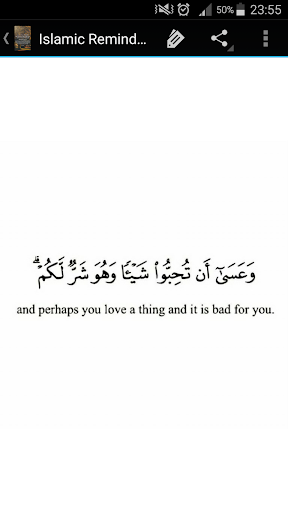 50% 23:55
Islamic Remind...
وَعَسَىٰٓ أَن تُحِبُّوا۟ شَيْـًٔا وَهُوَ شَرٌّ لَّكُمْ ۗ
and perhaps you love a thing and it is bad for you.